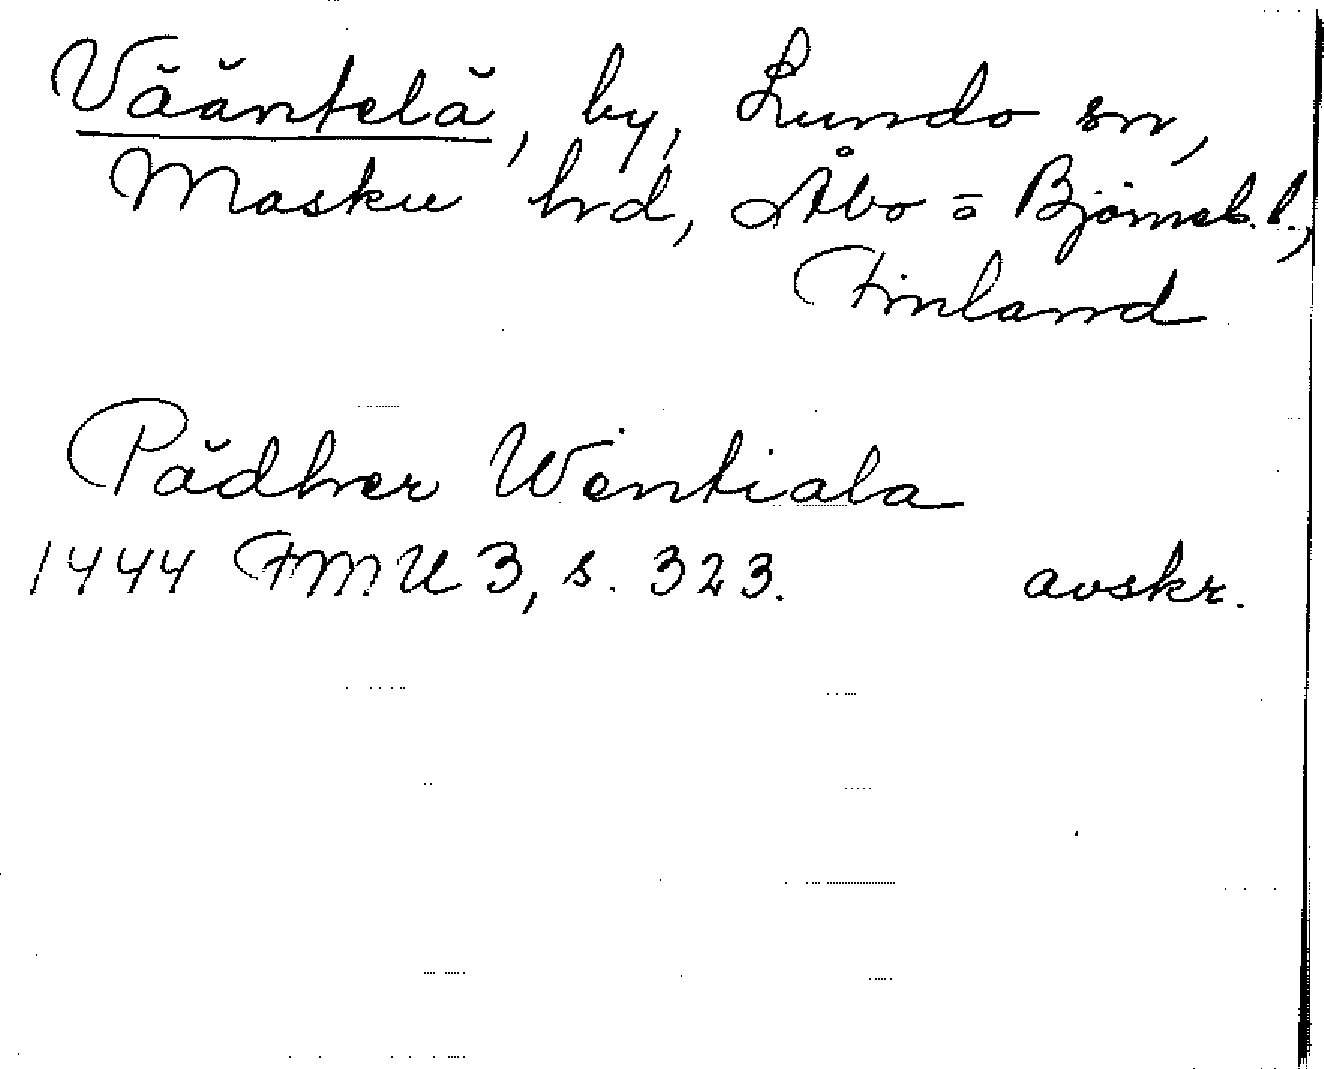 Vääntelä, by, Lundo sn,
Masku hrd, Åbo = o Björneb. l.,
Finland
Pädher Wentiala
1444 FMU 3, s. 323. avskr.